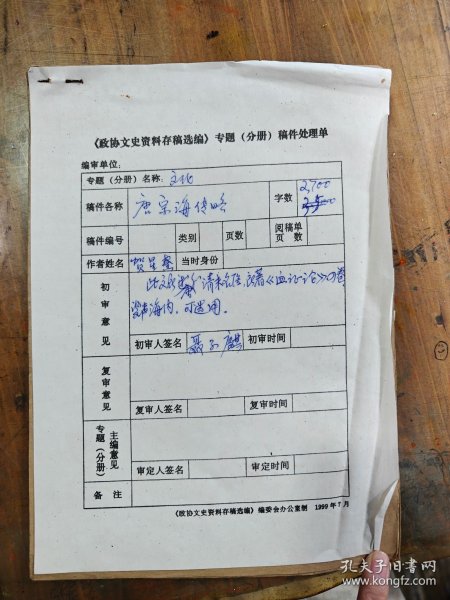 《政协文史资料存稿选编》专题（分册）稿件处理单
编审单位：
专题（分册）名称：文化
稿件各称 唐宗海传略 字数 2,700
稿件编号 类别 页数 阅稿单页数
作者姓名 贺星 当时身份
初审意见 此文 清末名医 著《血证论》
海内，可选用。
初审人签名 聂 麒 初审时间
复审意见
复审人签名 复审时间
专题（分册）主编意见
审定人签名 审定时间
备注
《政协文史资料存稿选编》编委会办公室制 1999年7月
孔夫子旧书网
www.kongfz.com